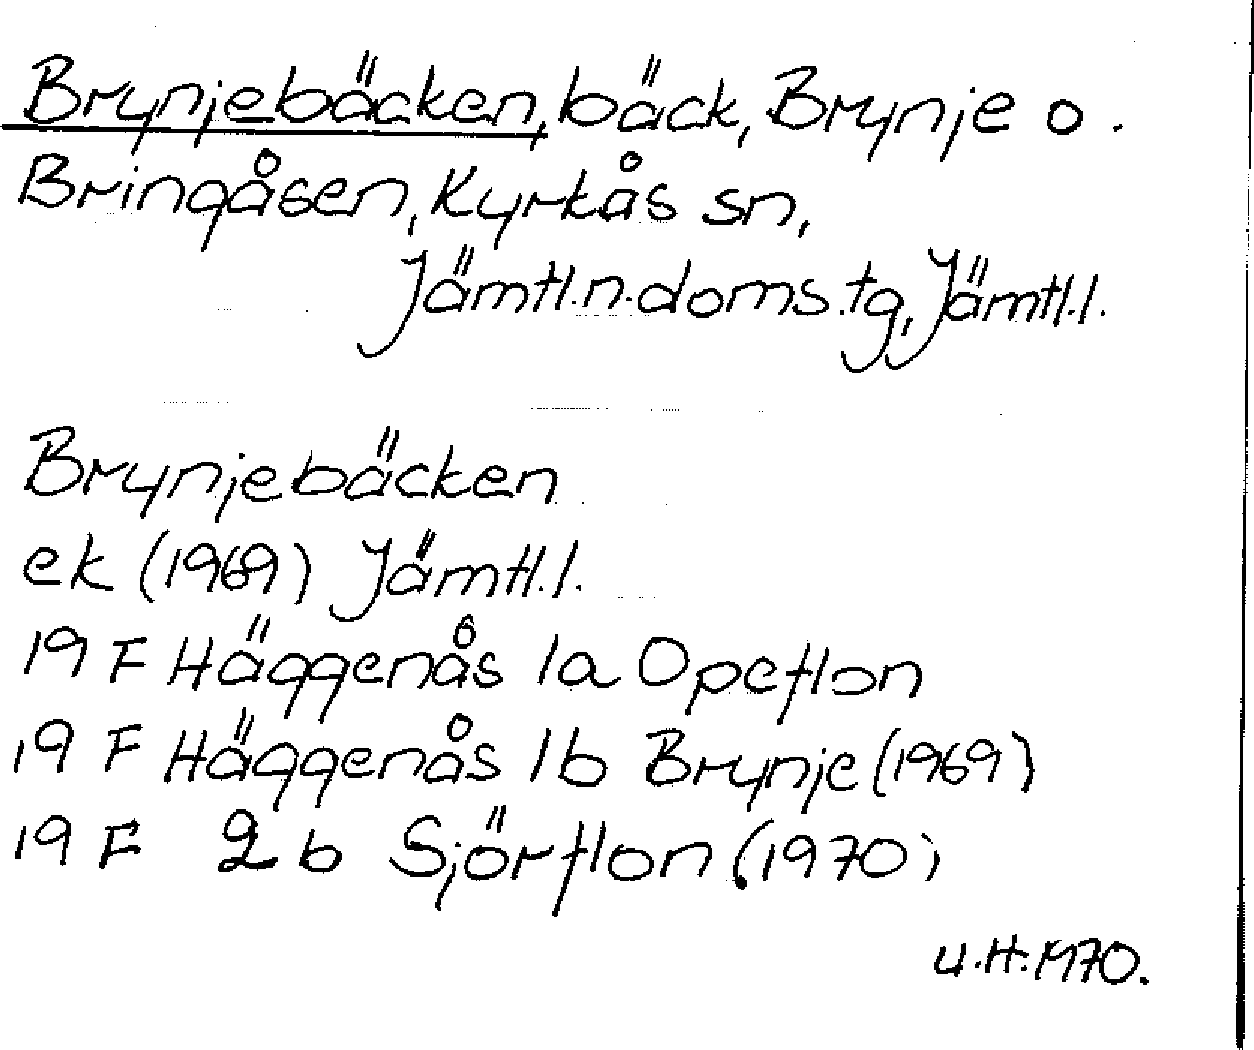 Brynjebäcken, bäck, Brynje o.
Bringåsen, Kyrkås sn,
Jämtl.n.doms.tg, Jämtl.l.
Brynjebäcken
ek (1969) Jämtl.l.
19 F Häggenås 1a Opeflon
19 F Häggenås 1b Brynje (1969)
19 F 2b Sjörflon (1970)
U.H. 1970.